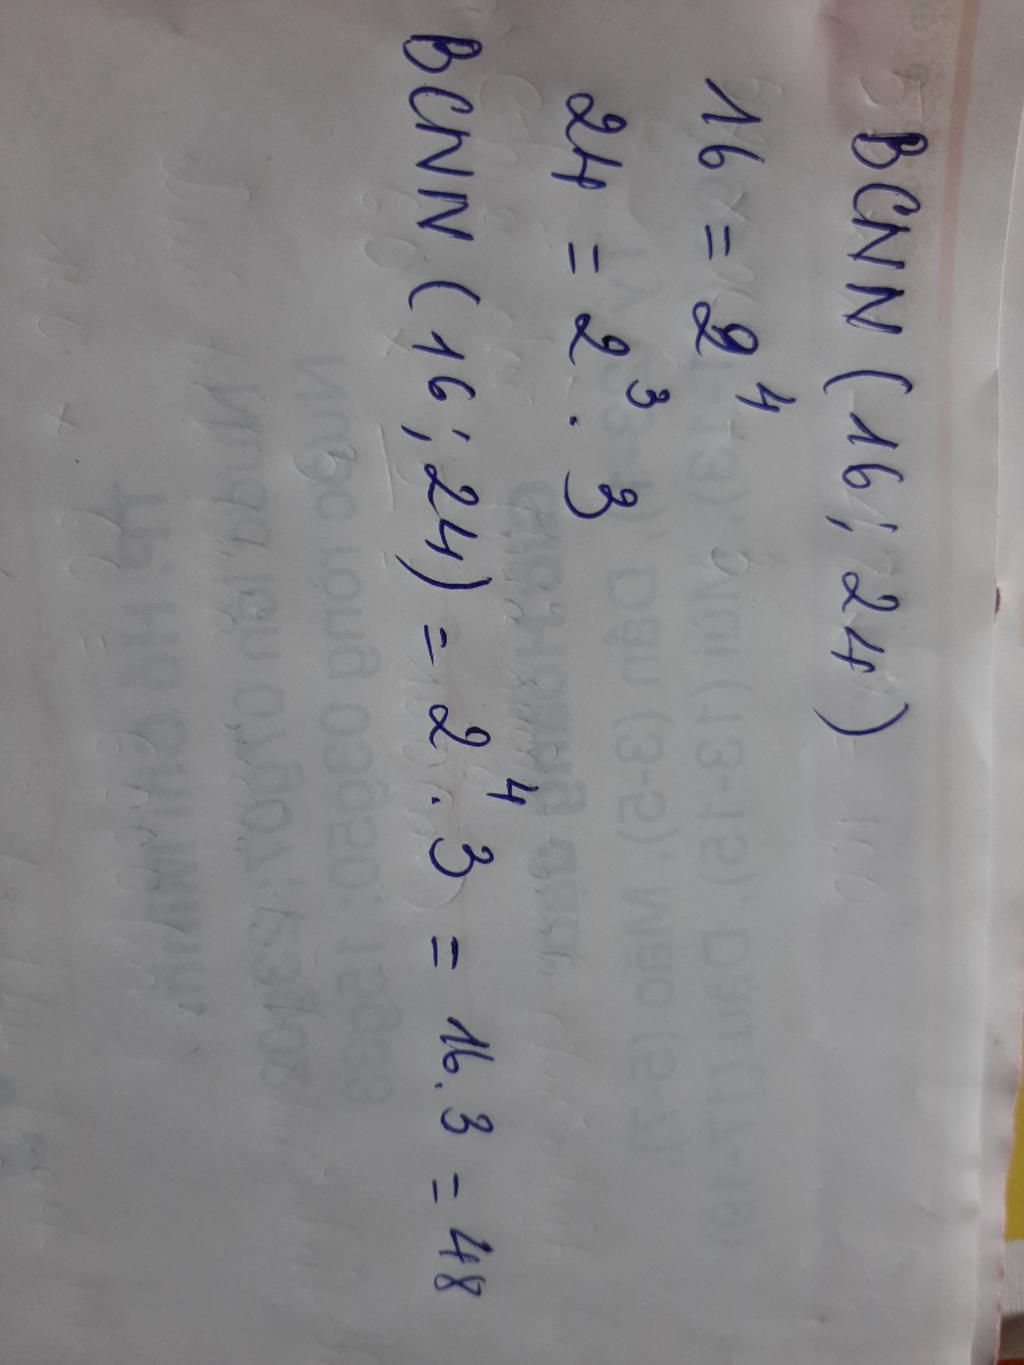 BCNN (16; 24)
16 = 2⁴
24 = 2³ . 3
BCNN (16; 24) = 2⁴ . 3 = 16 . 3 = 48